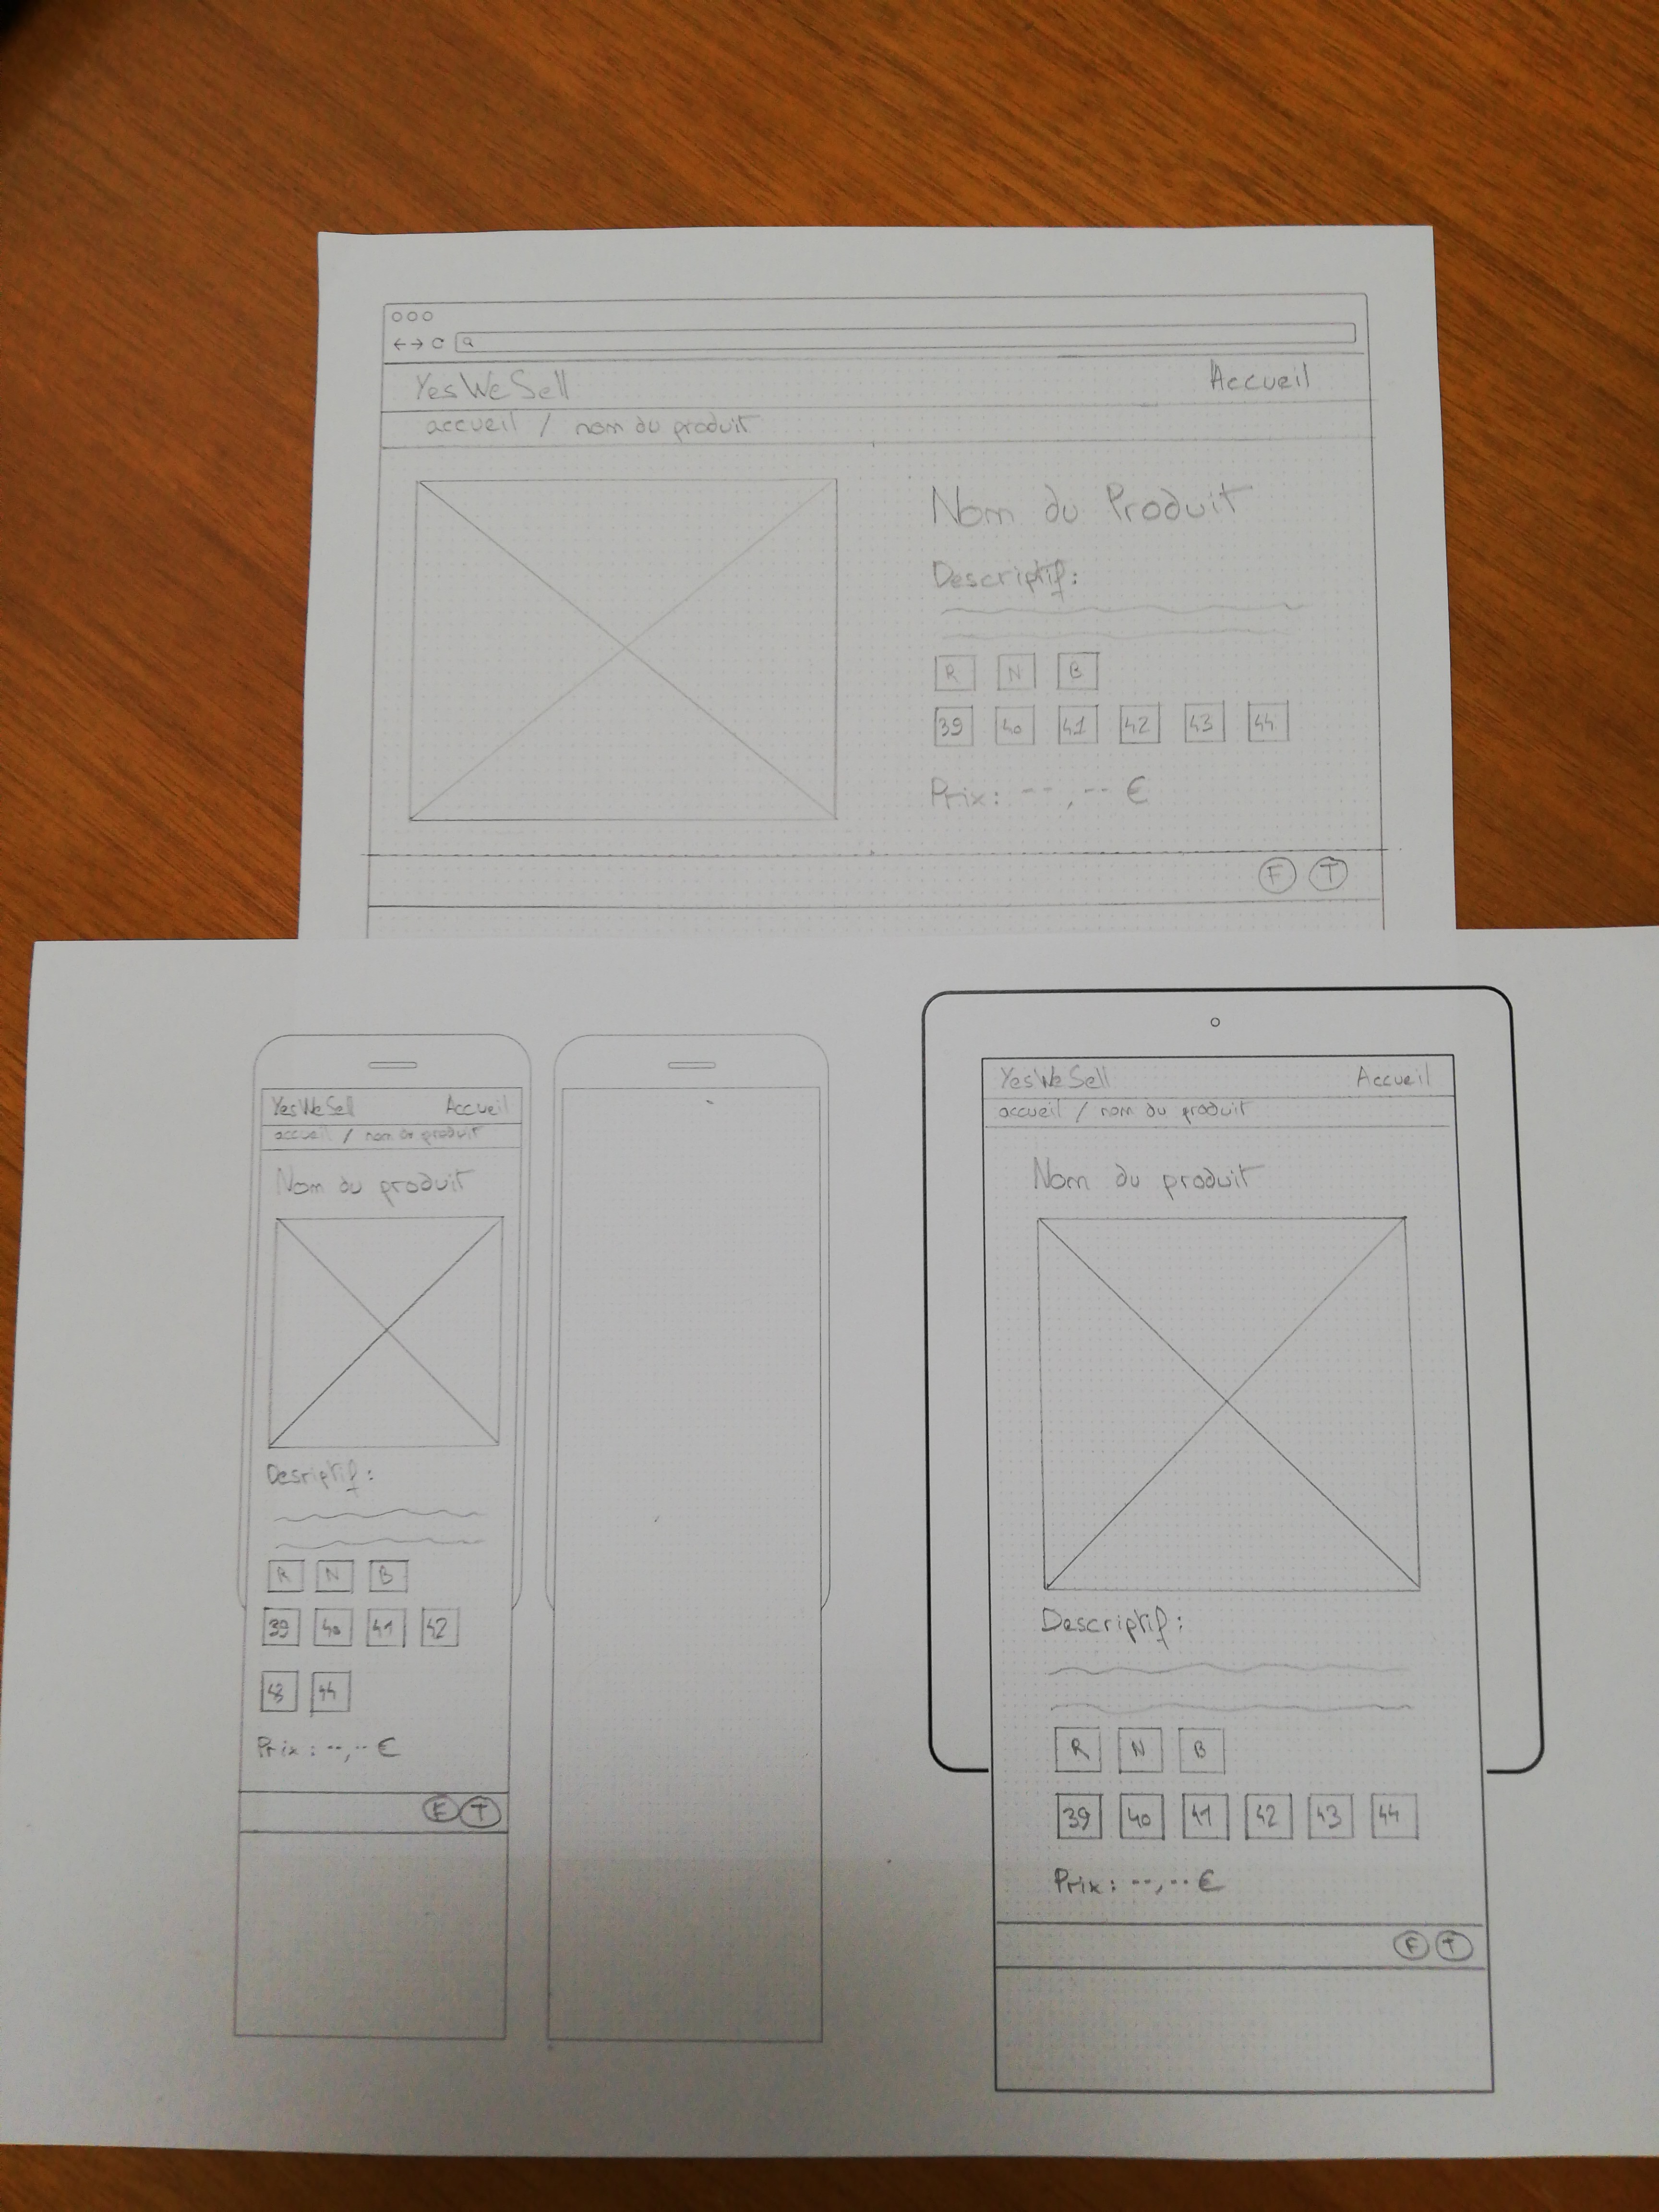 YesWeSell Accueil
accueil / nom du produit
Nom du Produit
Descriptif:
R N B
39 40 41 42 43 44
Prix: --,-- €
F T
YesWeSell Accueil
accueil / nom du produit
Nom du produit
Desriptif:
R N B
39 40 41 42
43 44
Prix: --,-- €
F T
YesWeSell Accueil
accueil / nom du produit
Nom du produit
Descriptif:
R N B
39 40 41 42 43 44
Prix: --,-- €
F T